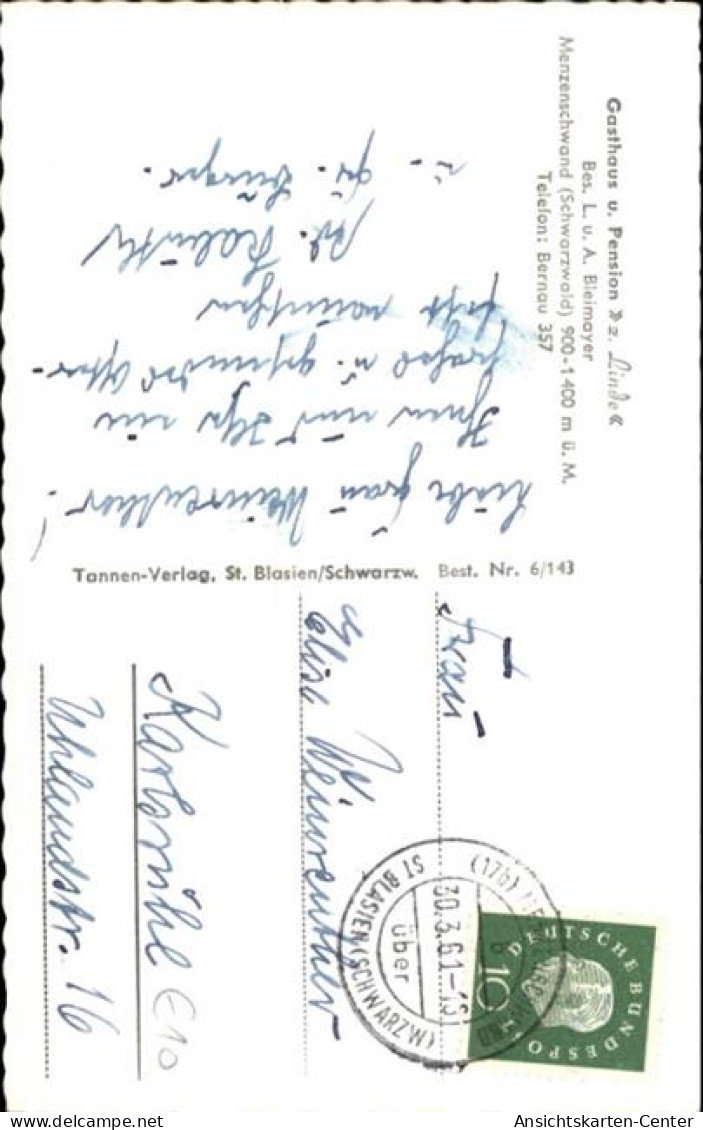 Gasthaus u. Pension »z. Linde«
Bes. L. u. A. Bleimayer
Menzenschwand (Schwarzwald) 900-1400 m ü. M.
Telefon: Bernau 357
Liebe Frau Weinreuther!
Ihnen und
frohes u. gesundes Oster-
fest wünschen
u.
Tannen-Verlag, St. Blasien/Schwarzw. Best. Nr. 6/143
Frau
Elise Weinreuther
Karlsruhe
Uhlandstr. 16
€10
(17b) MENZENSCHWAND
30.3.61-
über
ST BLASIEN (SCHWARZW)
DEUTSCHE BUNDESPO
10
Ansichtskarten-Center